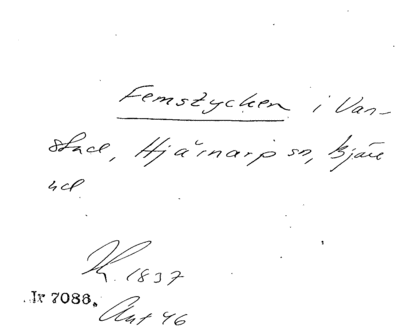 Femstycken i Van-
stad, Hjärnarp sn, Bjäre
hd
1837
Ir 7086.
Ant 46